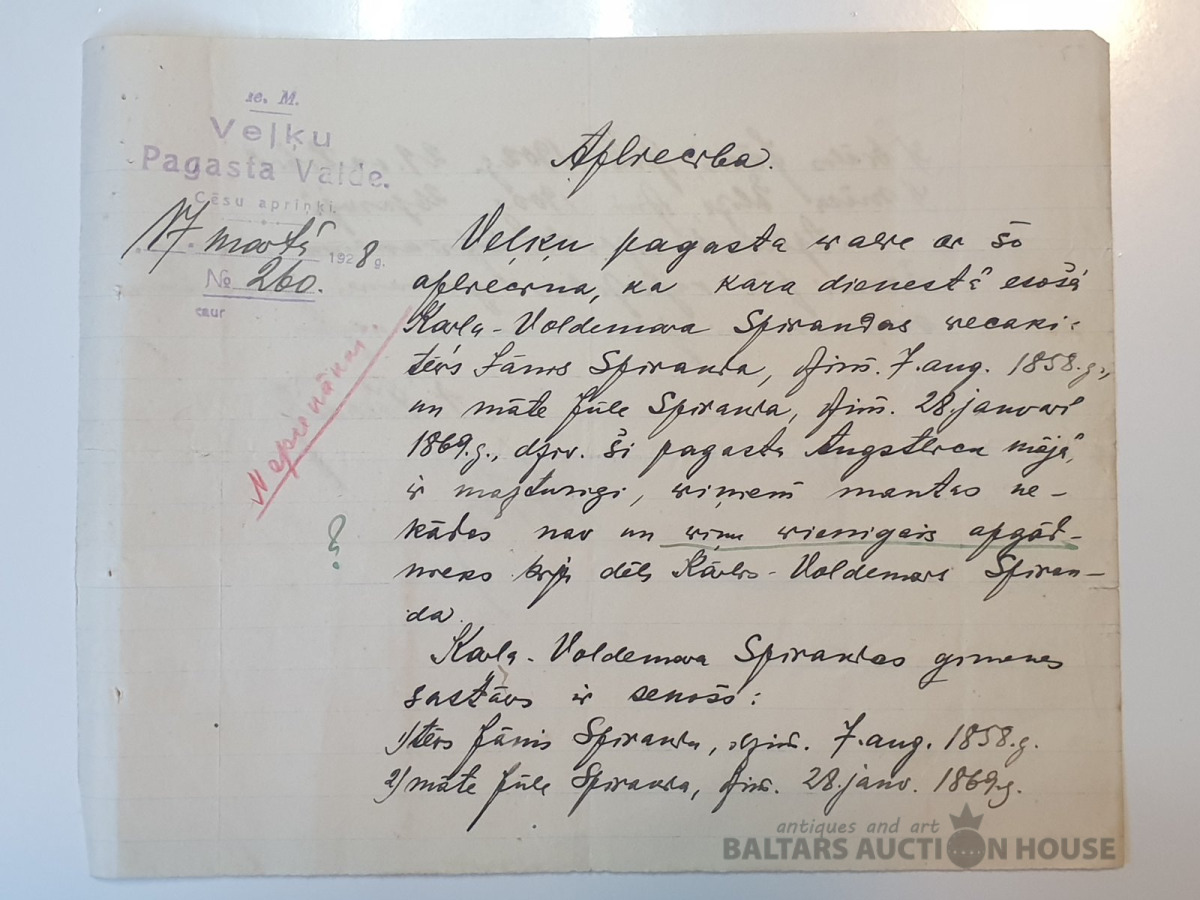 Ie. M.
Veļķu
Pagasta Valde.
Cēsu apriņķī.
17. martā 1928 g.
№ 260.
caur
Nepienākas.
?
Apliecība.
Veļķu pagasta walde ar šo
apliecina, ka kara dienestā esošā
Karļa-Voldemara Spirandas wecaki:
tēvs Jānis Spiranda, dzim. 7. aug. 1858.g.,
un māte Jūle Spiranda, dzim. 28. janvarī
1869.g., dzīv. šī pagasta mājā,
ir mazturīgi, wiņiem mantas ne-
kādas nav un wiņu wienigais apgād-
nieks bija dēls Kārlis-Voldemars Spiran-
da.
Karļa-Voldemara Spirandas ģimenes
sastāvs ir senošs:
1) tēvs Jānis Spiranda, dzim. 7. aug. 1858.g.
2) māte Jūle Spiranda, dzim. 28. janv. 1869.g.
antiques and art
BALTARS AUCTION HOUSE